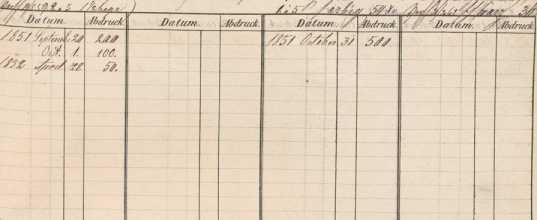 Datum. Abdruck. Datum. Abdruck. Datum. Abdruck. Datum. Abdruck.
1851 Septemb. 20 200 1851 October 31 500
Oct. 1. 100.
1852 April 20 50.